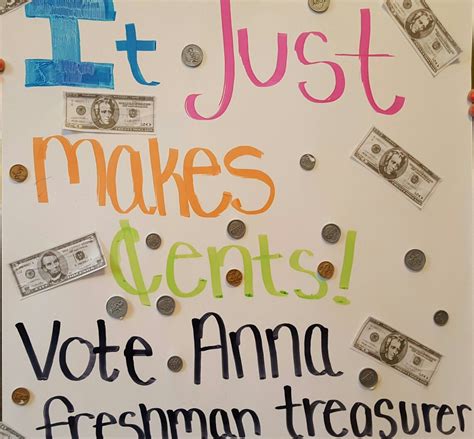 It Just
makes
¢ents!
Vote Anna
freshman treasurer